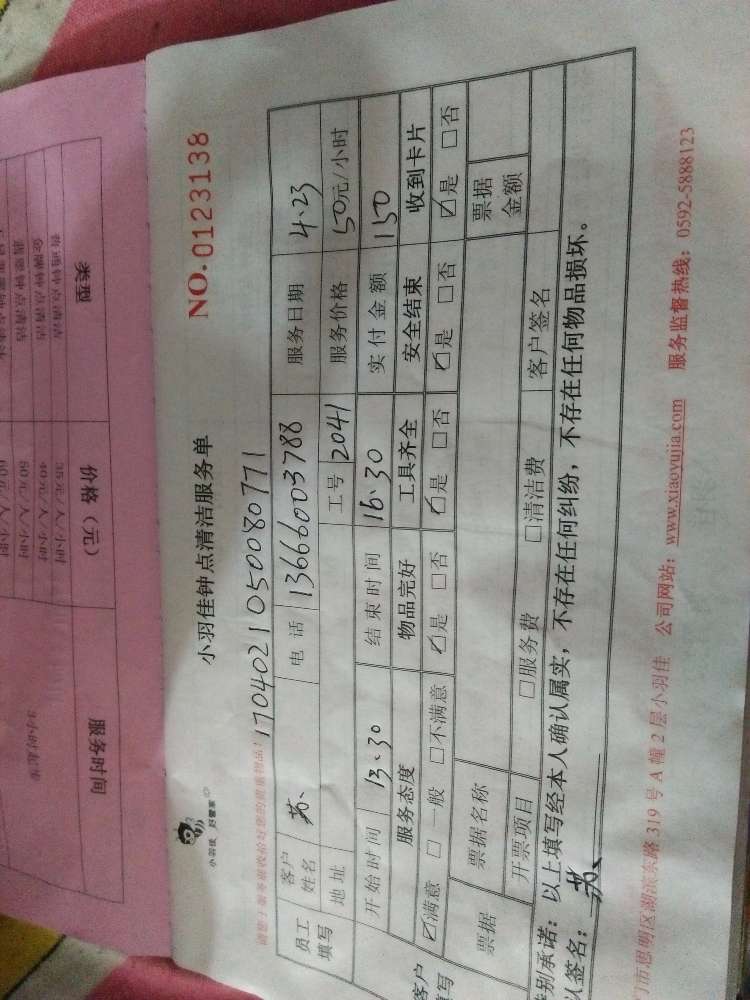 小羽佳 好管家
小羽佳钟点清洁服务单
NO.0123138
1704021050080771
员工填写
客户姓名 苏、 电话 13666003788 服务日期 4.23
地址 工号 2041 服务价格 50元/小时
开始时间 13、30 结束时间 16、30 实付金额 150
服务态度 物品完好 工具齐全 安全结束 收到卡片
☑满意 □一般 □不满意 ☑是 □否 ☑是 □否 ☑是 □否 ☑是 □否
票据 票据名称 票据金额
开票项目 □服务费 □清洁费 客户签名
别承诺：以上填写经本人确认属实，不存在任何纠纷，不存在任何物品损坏。
人签名：苏、
门市思明区湖滨东路 319 号 A 幢 2 层小羽佳 公司网站：www.xiaoyujia.com 服务监督热线：0592-5888123
类型 价格（元） 服务时间
35元/人/小时
40元/人/小时
50元/人/小时